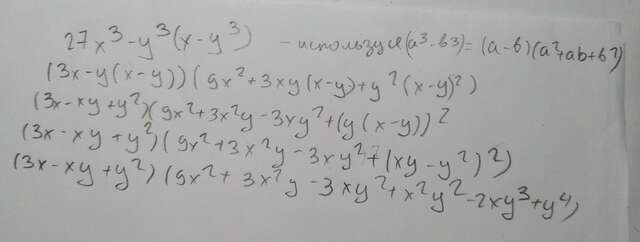 27x³-y³(x-y³) - используя (a³-b³)=(a-b)(a²+ab+b²)
(3x-y(x-y))(9x²+3xy(x-y)+y²(x-y)²)
(3x-xy+y²)(9x²+3x²y-3xy²+(y(x-y))²
(3x-xy+y²)(9x²+3x²y-3xy²+(xy-y²)²)
(3x-xy+y²)(9x²+3x²y-3xy²+x²y²-2xy³+y⁴)